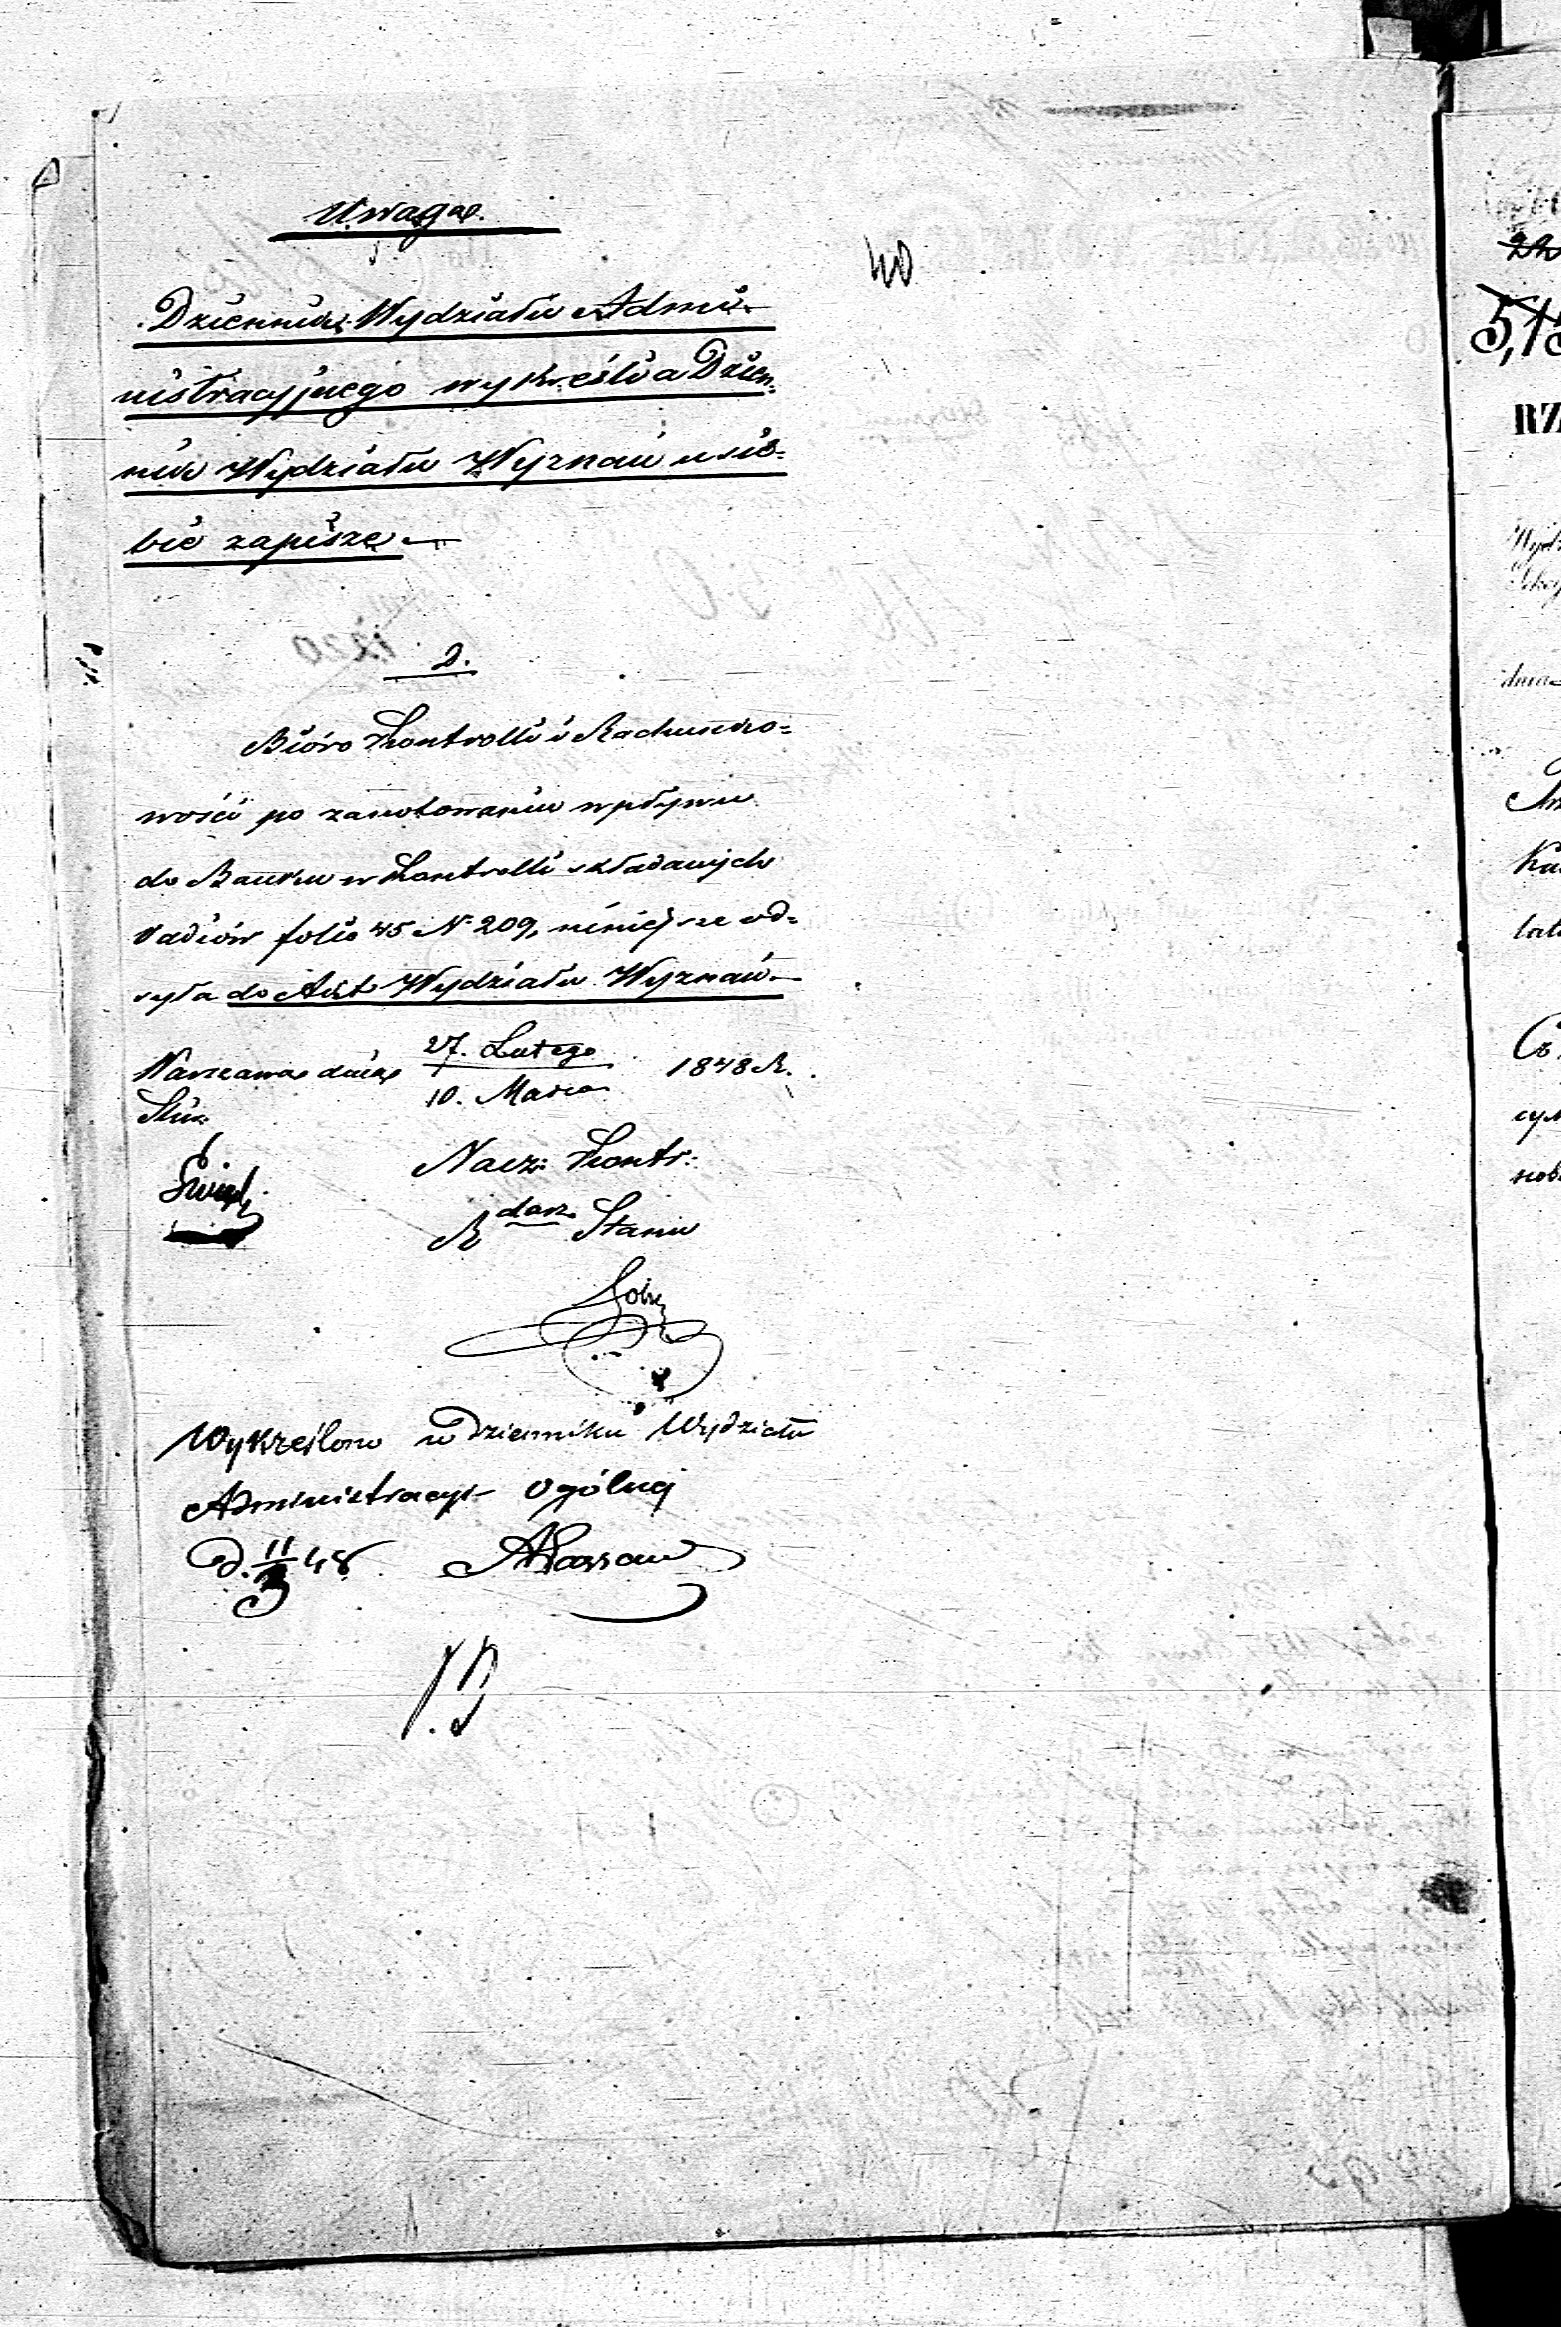 Uwaga.
40
Dziennik Wydziału Admi-
nistracyjnego wykreśli a Dzien-
nik Wydziału Wyznań u sie-
bie zapisze
2.
Bióro Kontrolli i Rachunko=
wości po zanotowaniu wpływu
do Banku w Kontrolli składanych
Vadiów folio 45 N 209, niniejsze od=
syła do Akt Wydziału Wyznań
Warszawa dnia 27. Lutego / 10. Marca 1848 R.
Nacz: Kontr:
R darz Stanu
Wykreślono w Dzienniku Wydziału
Administracyi Ogólnej
d. 11/3 48